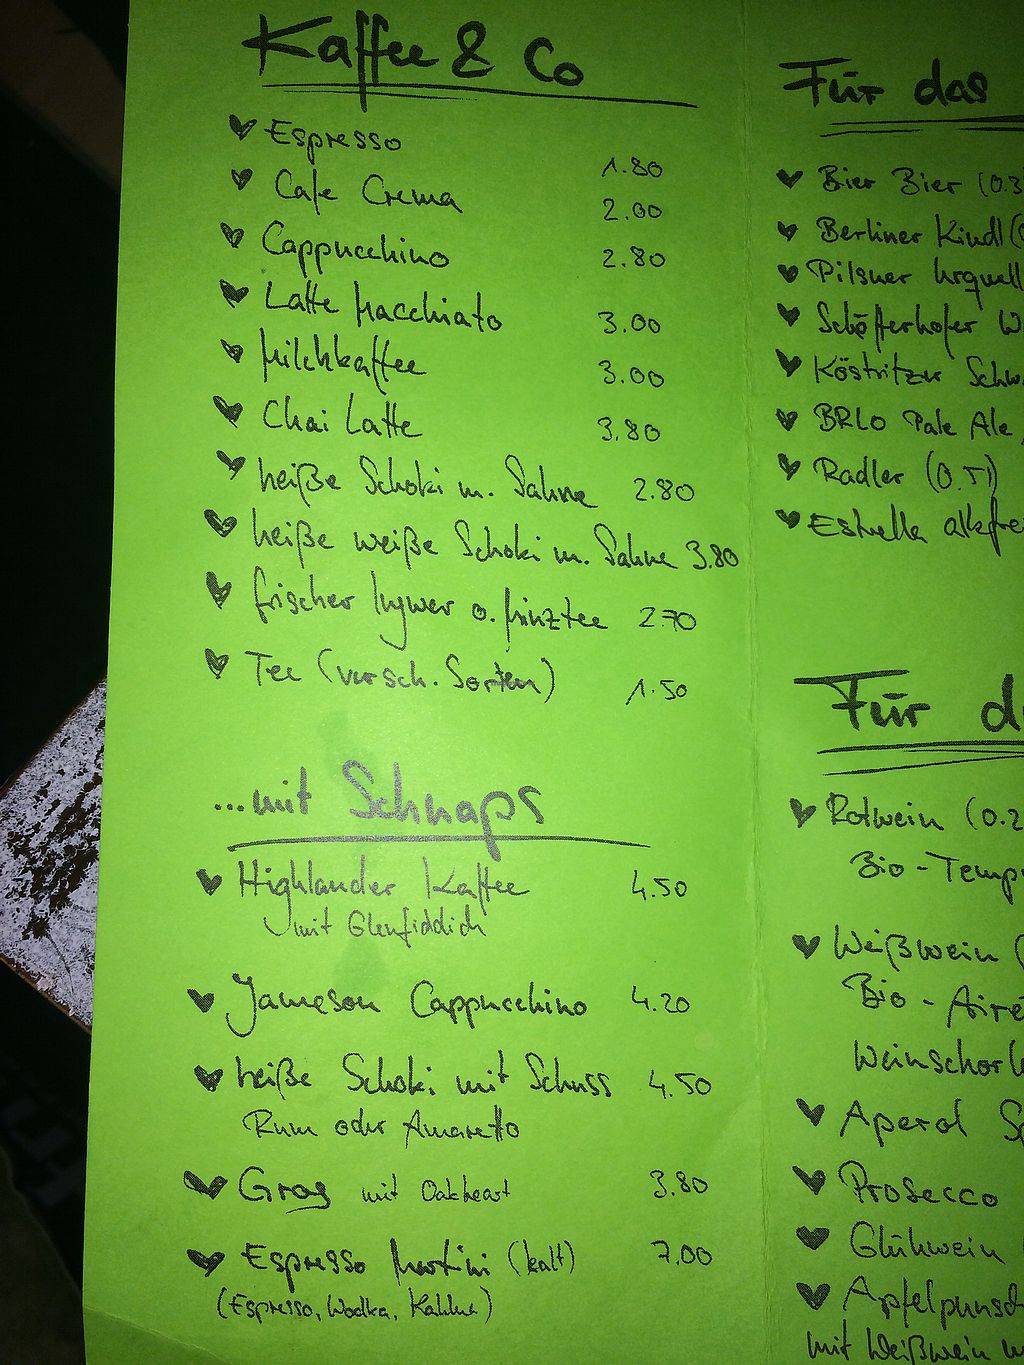 Kaffee & Co
Espresso 1.80
Cafe Crema 2.00
Cappucchino 2.80
Latte Macchiato 3.00
Milchkaffee 3.00
Chai Latte 3.80
heiße Schoki m. Sahne 2.80
heiße weiße Schoki m. Sahne 3.80
frischer Ingwer o. Minztee 2.70
Tee (versch. Sorten) 1.50
...mit Schnaps
Highlander Kaffee 4.50
mit Glenfiddich
Jameson Cappucchino 4.20
heiße Schoki mit Schuss 4.50
Rum oder Amaretto
Grog mit Oakheart 3.80
Espresso Martini (kalt) 7.00
(Espresso, Wodka, Kahlua)
Für das
Bier Bier (0.3
Berliner Kindl (
Pilsner Urquell
Schöfferhofer W
Köstritzer Schw
BRLO Pale Ale
Radler (0.5l)
Estrella alkfrei
Für d
Rotwein (0.2
Bio - Temp
Weißwein (
Bio - Airé
Weinschorle
Aperol Sp
Prosecco
Glühwein
Apfelpunsch
mit Weißwein